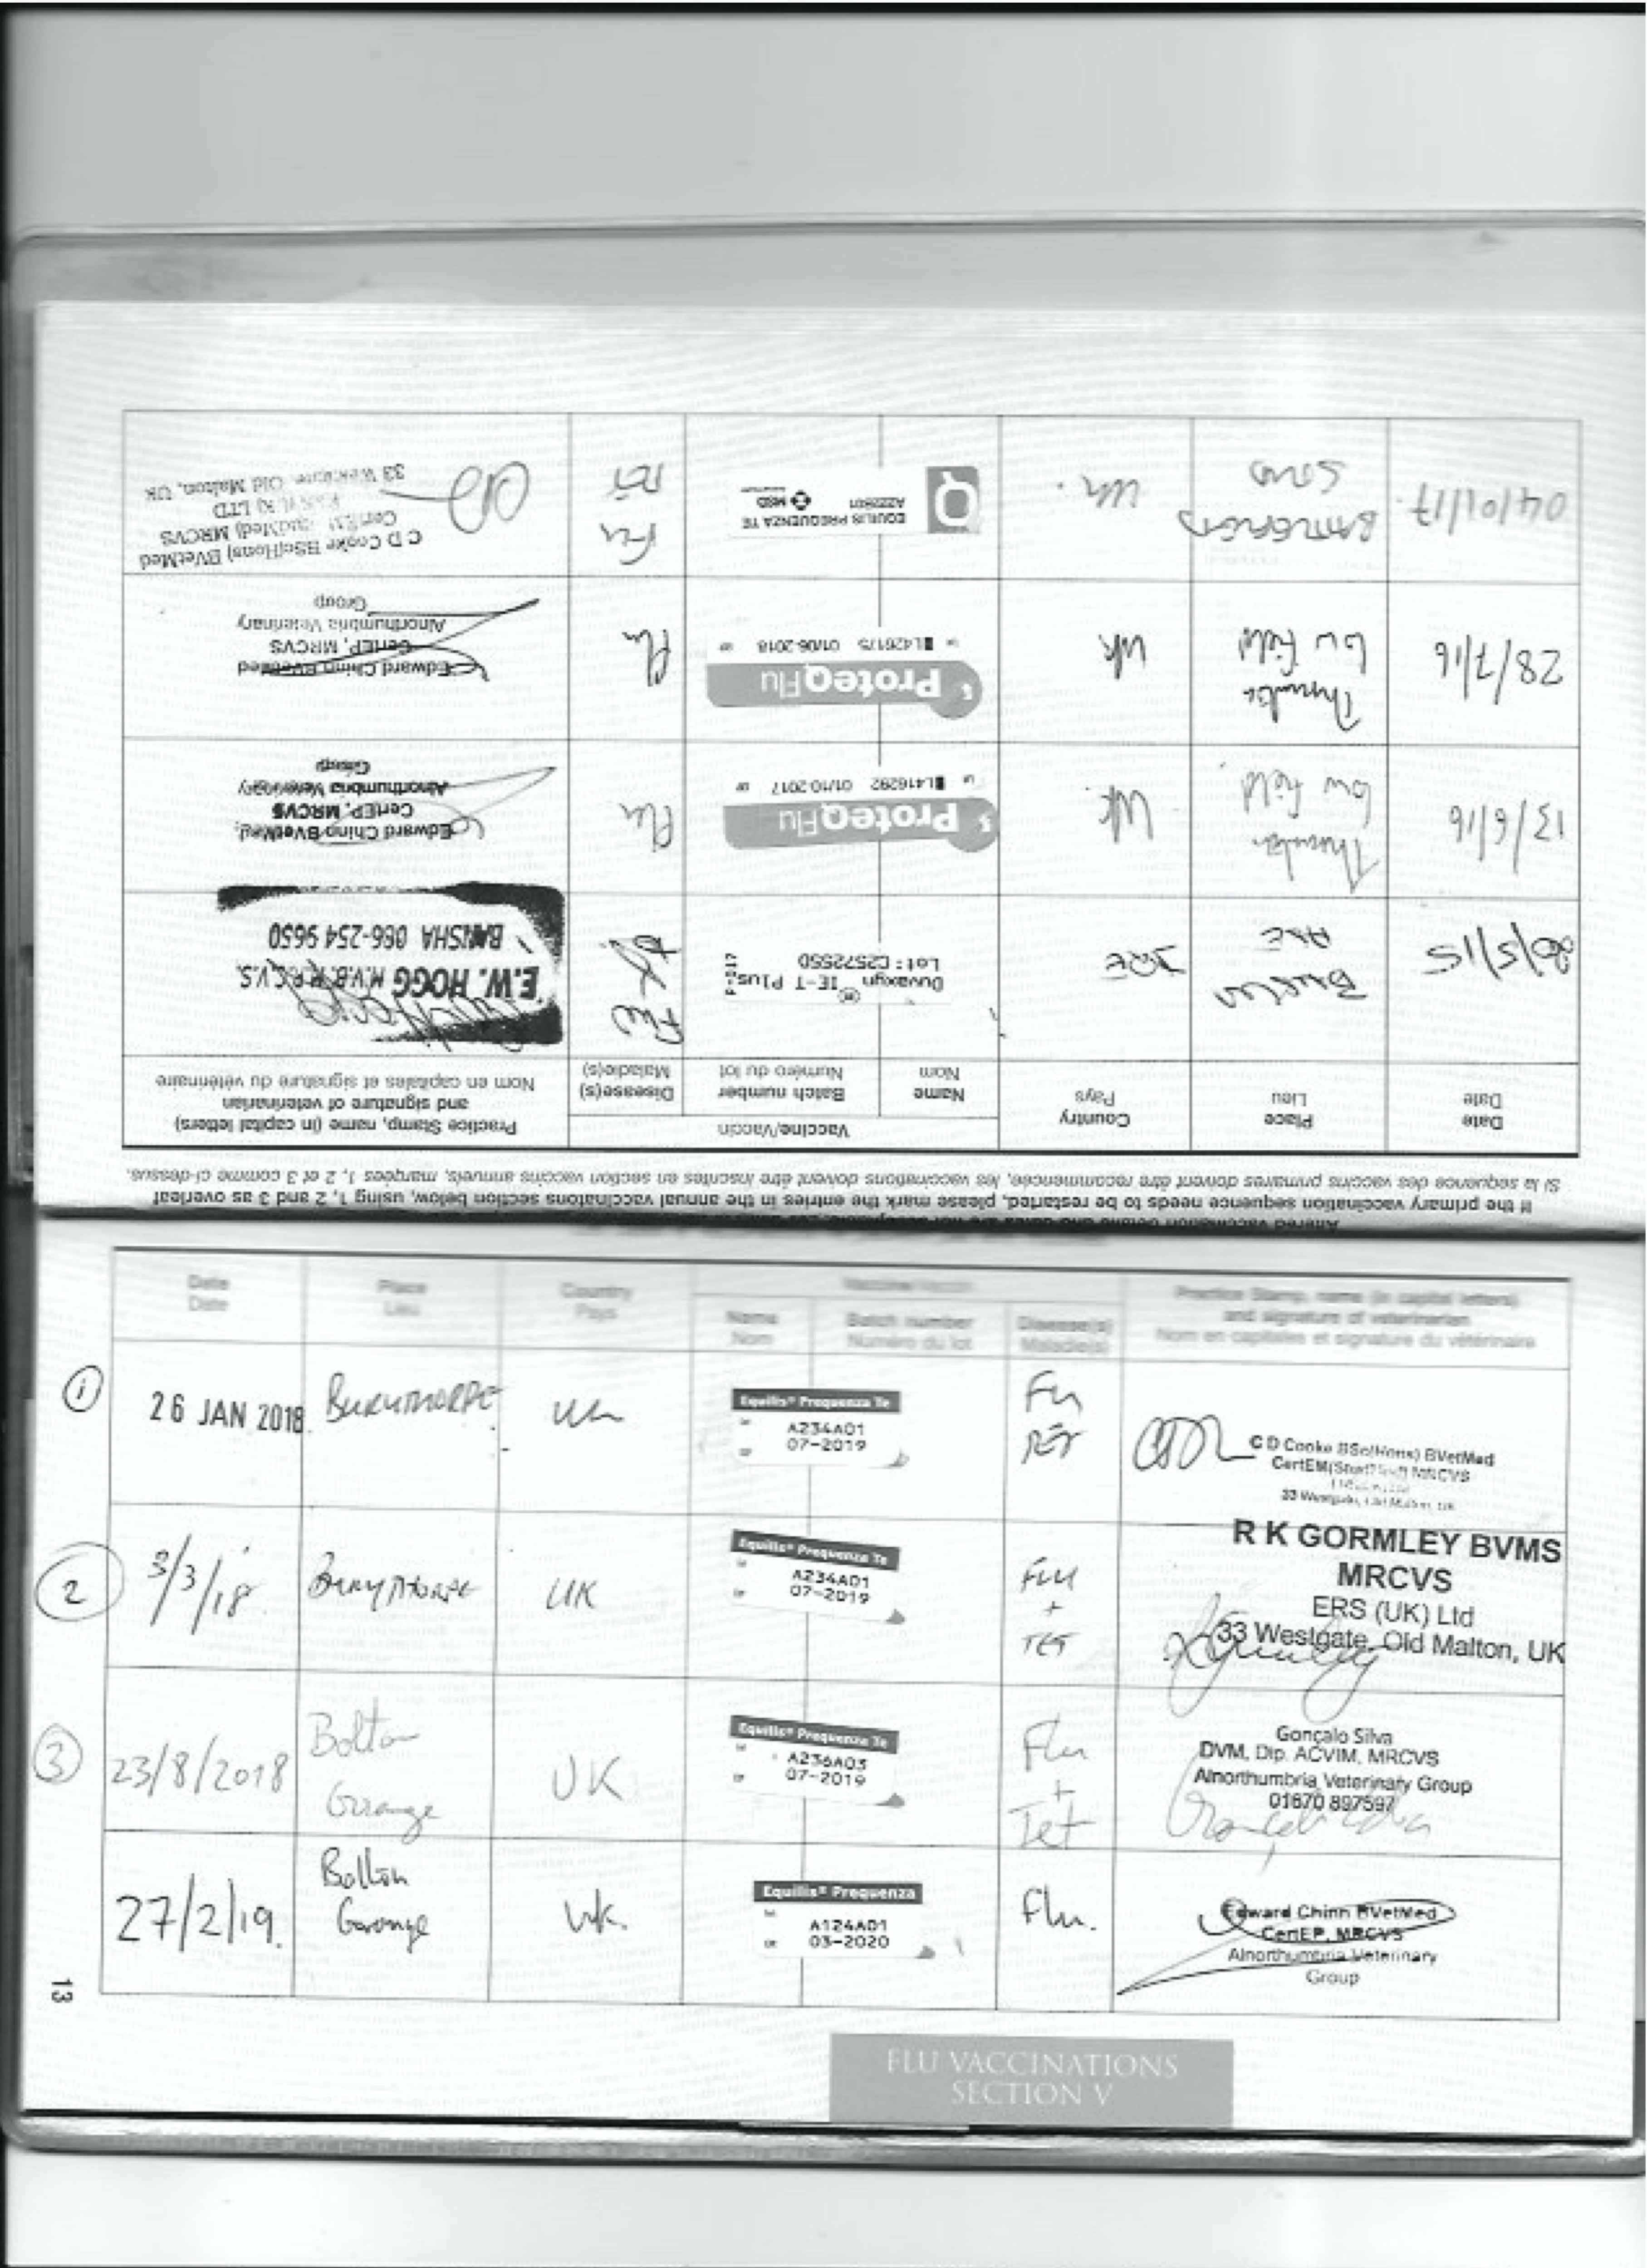 Altered vaccination
If the primary vaccination sequence needs to be restarted, please mark the entries in the annual vaccinations section below, using 1, 2 and 3 as overleaf
Si la sequence des vaccins primaires doivent être recommencée, les vaccinations doivent être inscrites en section vaccins annuels, marquées 1, 2 et 3 comme ci-dessus.
Date
Date
Place
Lieu
Country
Pays
Vaccine/Vaccin
Name
Nom
Batch number
Numéro du lot
Disease(s)
Maladie(s)
Practice Stamp, name (in capital letters)
and signature of veterinarian
Nom en capitales et signature du vétérinaire
/5/15
IRE
Duvaxyn® IE-T Plus
Lot: C257255D
Flu
E.W. HOGG M.V.B. M.R.C.V.S.
BANSHA 086-254 9650
13/6/16
Low Field
UK
ProteqFlu
L416292 01/10-2017
Flu
Edward Chinn BVetMed
CertEP, MRCVS
Alnorthumbria Veterinary
Group
28/7/16
Low Field
UK
ProteqFlu
L426175 01/06-2018
Flu
Edward Chinn BVetMed
CertEP, MRCVS
Alnorthumbria Veterinary
Group
04/01/17.
UK.
Q
EQUILIS PREQUENZA TE
MSD
Flu
TET
C D Cooke BSc(Hons) BVetMed
MRCVS
LTD
33 Westgate, Old Malton, UK
Date
Date
Place
Lieu
Country
Pays
Vaccine/Vaccin
Name
Nom
Batch number
Numéro du lot
Disease(s)
Maladie(s)
Practice Stamp, name (in capital letters)
and signature of veterinarian
Nom en capitales et signature du vétérinaire
1
26 JAN 2018
BURYTHORPE
UK
Equilis® Prequenza Te
A234A01
07-2019
Flu
TET
C D Cooke BSc(Hons) BVetMed
MRCVS
33 Westgate, Old Malton, UK
2
3/3/18
BURYTHORPE
UK
Equilis® Prequenza Te
A234A01
07-2019
FLU
+
TET
R K GORMLEY BVMS
MRCVS
ERS (UK) Ltd
33 Westgate, Old Malton, UK
3
23/8/2018
Bolton
Grange
UK
Equilis® Prequenza Te
A236A03
07-2019
Flu
+
Tet
Gonçalo Silva
DVM, Dip. ACVIM, MRCVS
Alnorthumbria Veterinary Group
01670 897597
27/2/19.
Bolton
Grange
UK.
Equilis® Prequenza
A124A01
03-2020
Flu.
Edward Chinn BVetMed
CertEP, MRCVS
Alnorthumbria Veterinary
Group
13
FLU VACCINATIONS
SECTION V